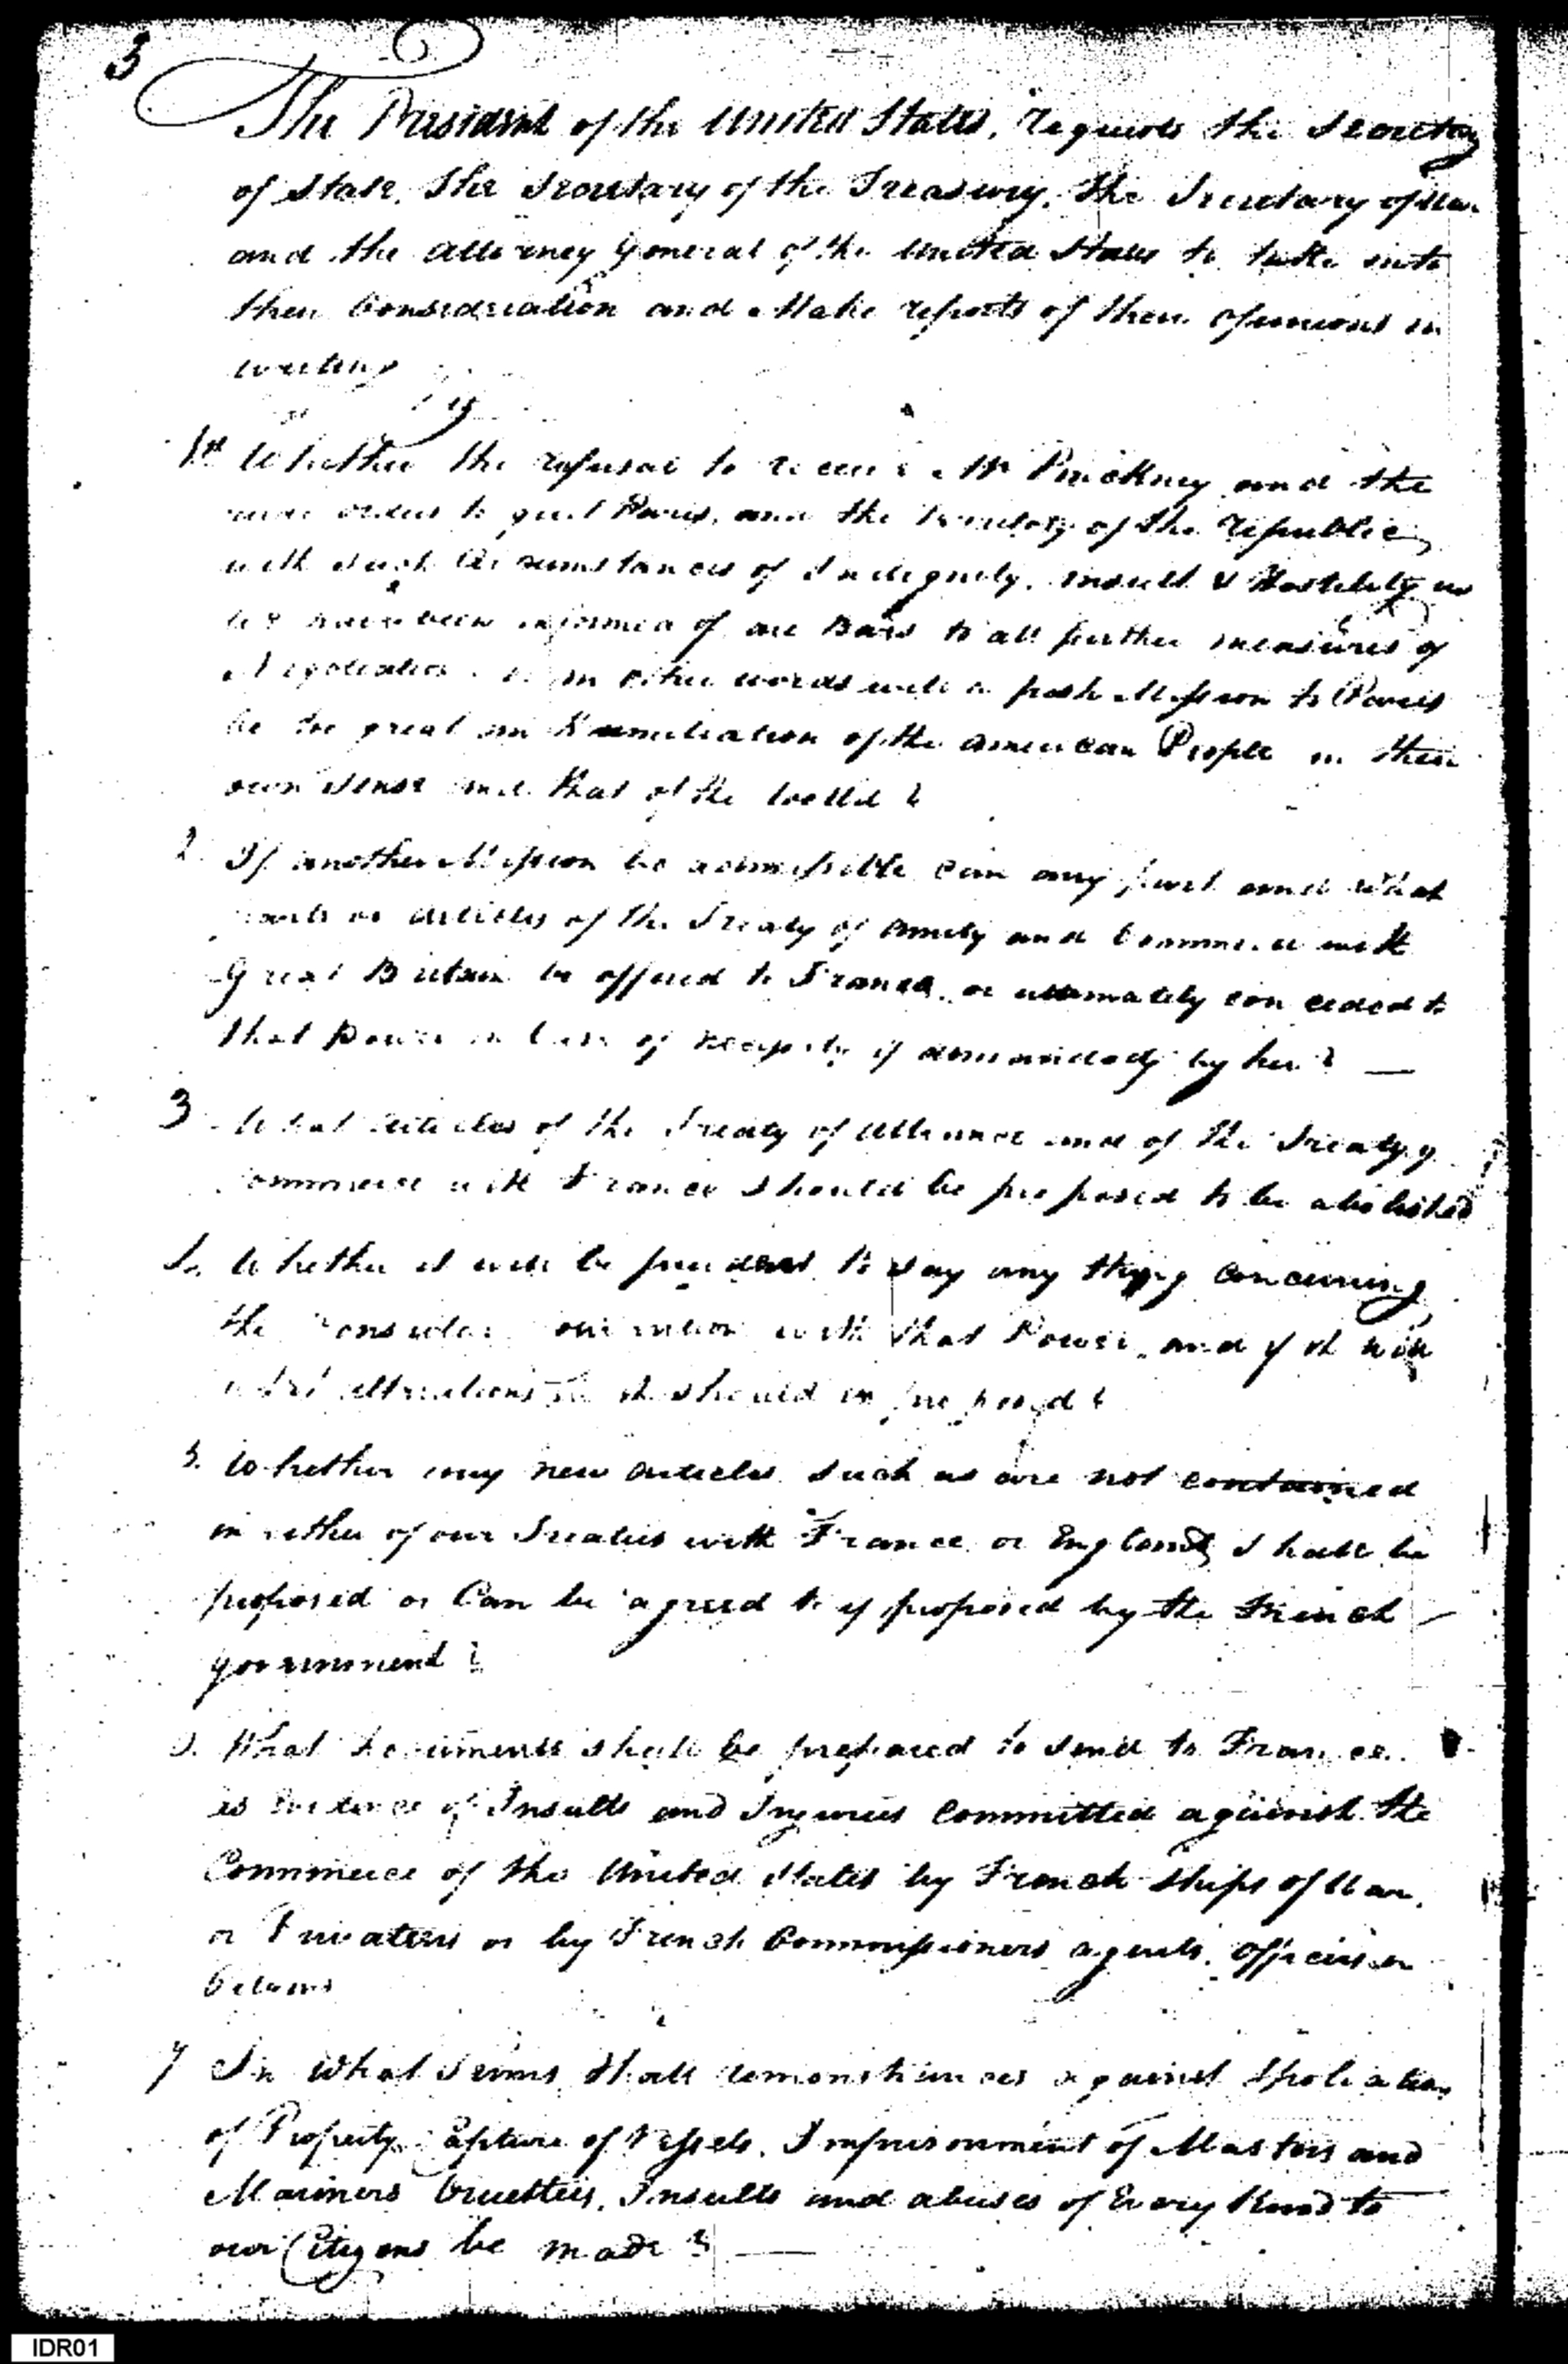 3
The President of the United States, requests the Secretary
of State, The Secretary of the Treasury, The Secretary of War
and the Attorney General of the United States to take into
their Consideration and Make reports of their opinions in
writing
1st Whether the refusal to receive Mr Pinckney and the
rude orders to quit Paris, and the Territory of the republic,
with such Circumstances of Indignity, insult & Hostility as
we have been informed of are Bars to all further measures of
Negotiation. or in other words will a fresh Mission to Paris
be too great an Humiliation of the American People in their
own Sense and that of the World?
2. If another Mission be admissible can any part and what
parts or articles of the Treaty of Amity and Commerce with
Great Britain be offered to France, or ultimately conceded to
that Power in Case of necessity if demanded by her? —
3 What Articles of the Treaty of Alliance and of the Treaty of
Commerce with France should be proposed to be abolished
4. Whether it will be prudent to say any thing concerning
the Consular Convention with that Power, and if it will
what alterations in it should be proposed?
5. Whether any new articles such as are not contained
in either of our Treaties with France or England, shall be
proposed or Can be agreed to if proposed by the French
government?
What Documents shall be prepared to send to France
as Evidence of Insults and Injuries committed against the
Commerce of the United States by French Ships of War,
or Privateers or by French Commissioners agents, officers or
Citizens
7 In What Terms Shall remonstrances against Spoliations
of Property, Capture of Vessels, Imprisonment of Masters and
Mariners Cruelties, Insults and abuses of Every Kind to
our Citizens be made? —
IDR01